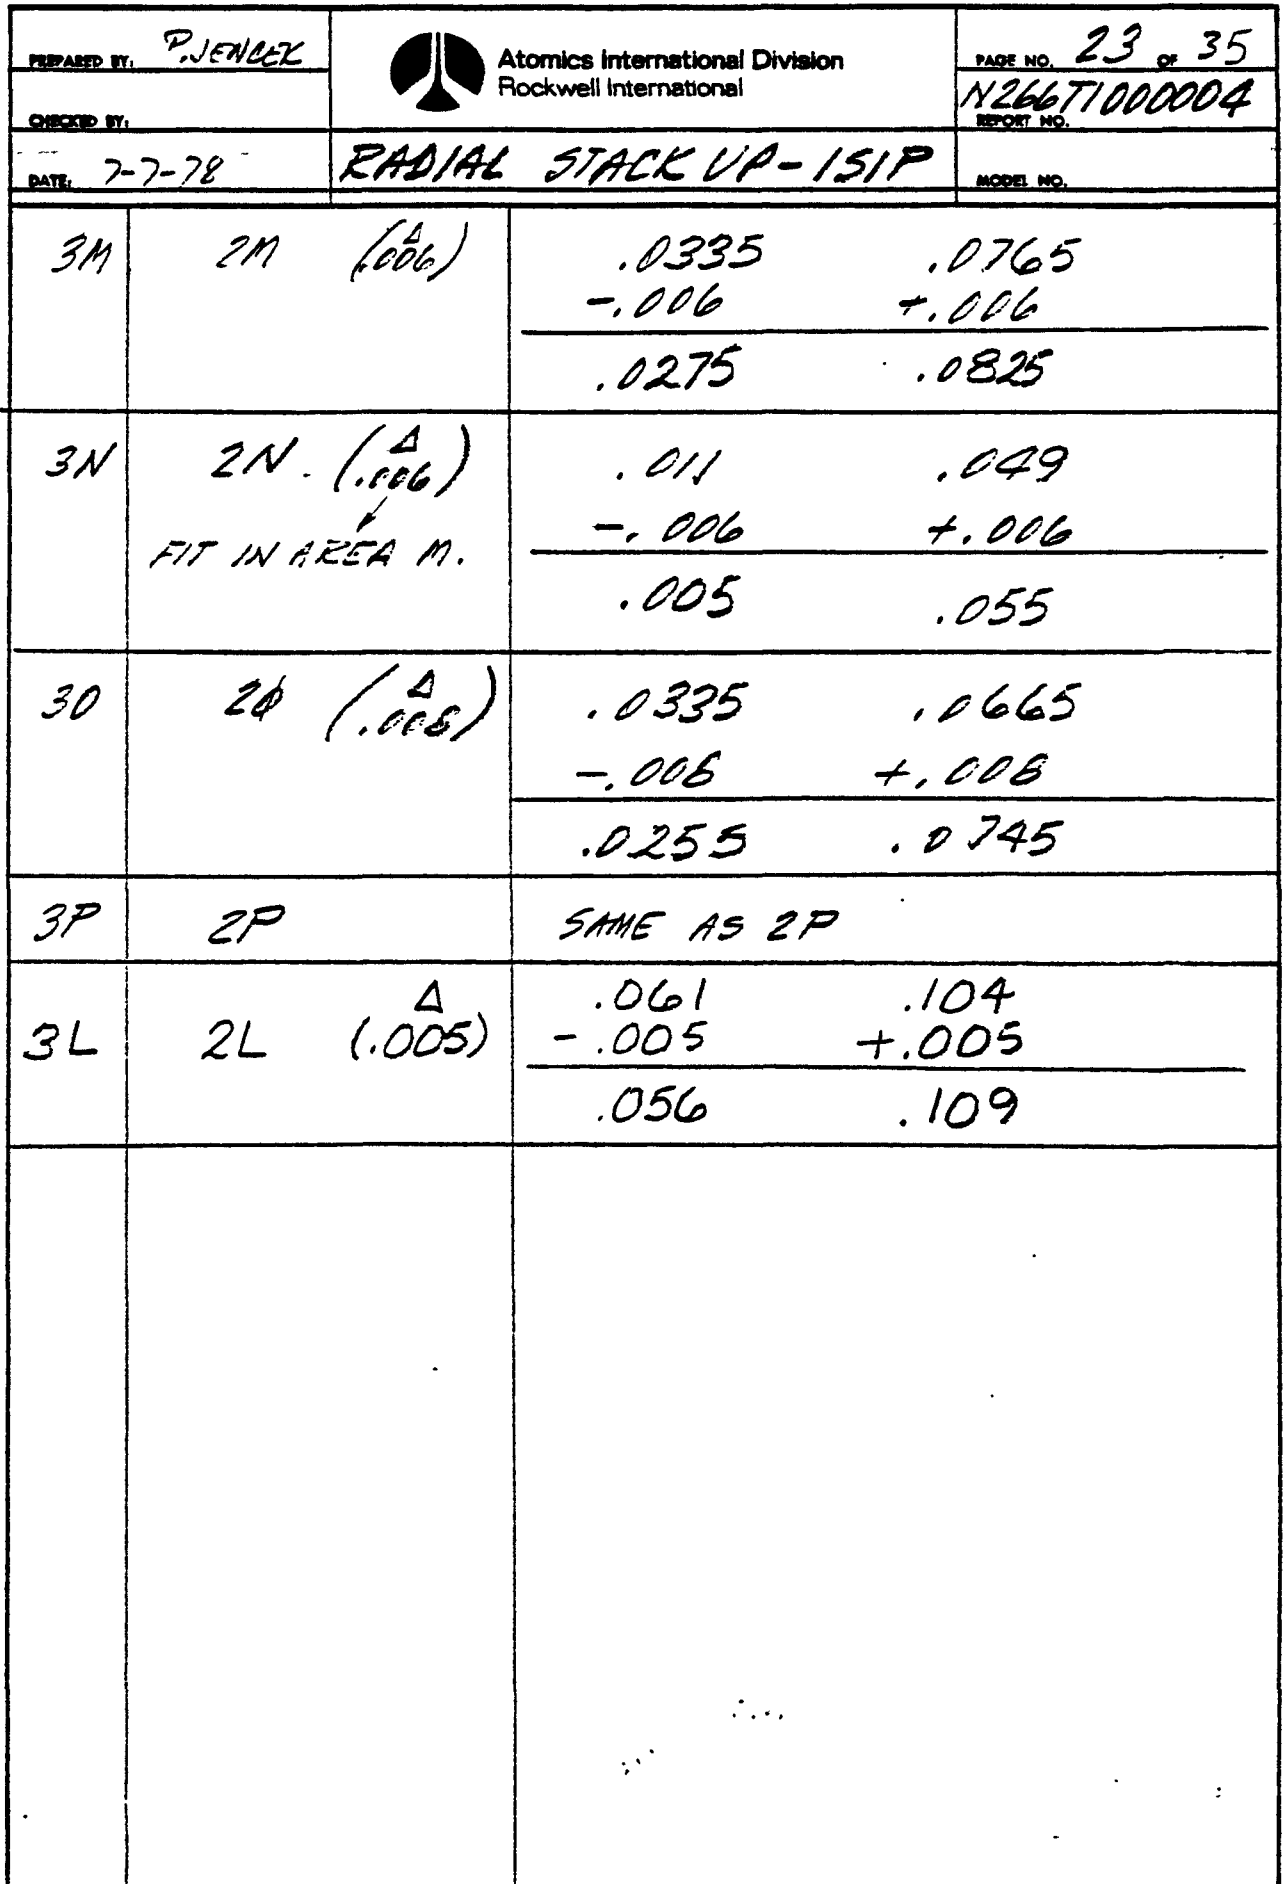 PREPARED BY: P. JENCEK
CHECKED BY:
DATE: 7-7-78
Atomics International Division
Rockwell International
RADIAL STACK UP - ISIP
PAGE NO. 23 OF 35
N266TI000004
REPORT NO.
MODEL NO.
3M 2M (Δ .006) .0335 .0765
-.006 +.006
.0275 .0825
3N 2N. (Δ .006) .011 .049
FIT IN AREA M. -.006 +.006
.005 .055
3O 2Ø (Δ .008) .0335 .0665
-.008 +.008
.0255 .0745
3P 2P SAME AS 2P
3L 2L (Δ .005) .061 .104
-.005 +.005
.056 .109